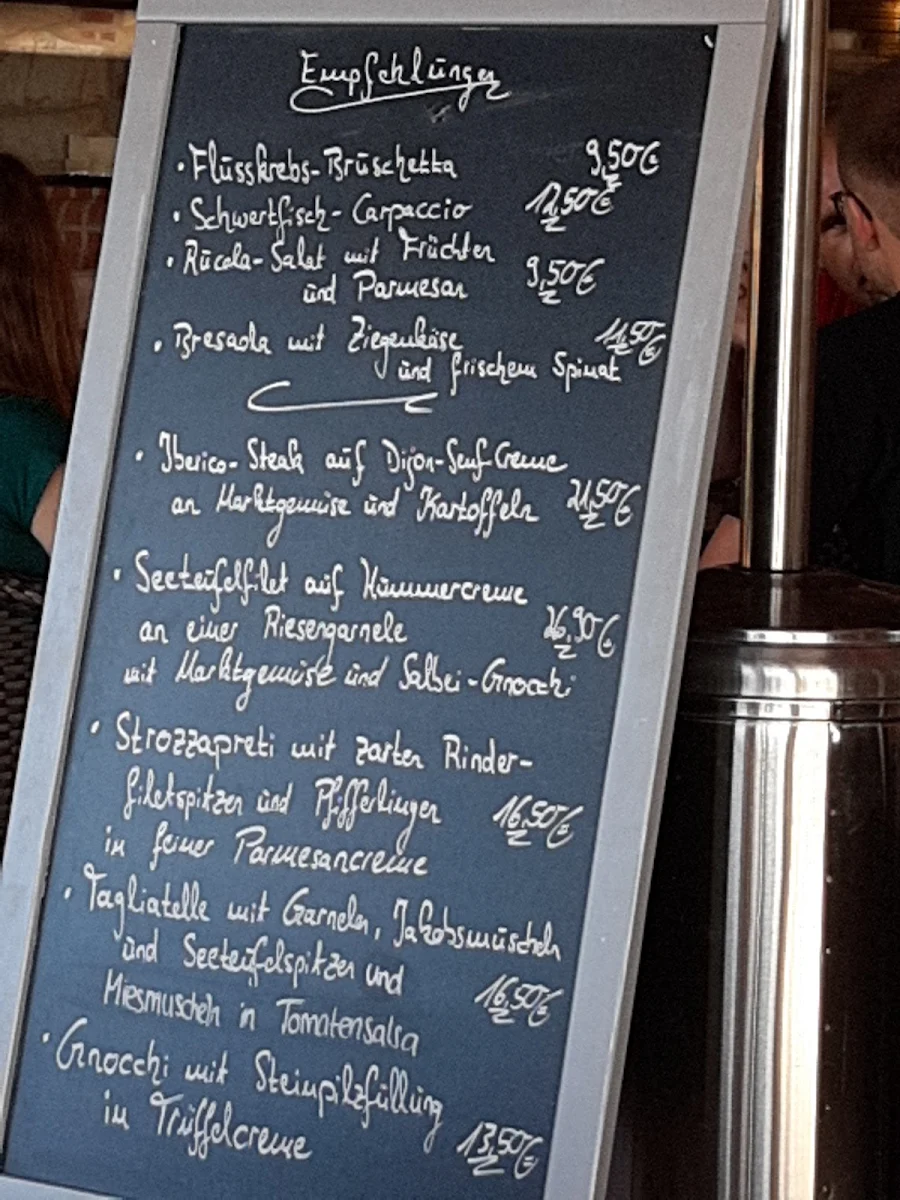 Empfehlungen
• Flusskrebs-Bruschetta 9,50€
• Schwertfisch-Carpaccio 12,50€
• Rucola-Salat mit Früchten
und Parmesan 9,50€
• Bresaola mit Ziegenkäse 11,50€
und frischem Spinat
• Iberico-Steak auf Dijon-Senf-Creme
an Marktgemüse und Kartoffeln 21,50€
• Seeteufelfilet auf Hummercreme
an einer Riesengarnele 26,90€
mit Marktgemüse und Salbei-Gnocchi
• Strozzapreti mit zarten Rinder-
filetspitzen und Pfifferlingen 16,50€
in feiner Parmesancreme
• Tagliatelle mit Garneln, Jakobsmuscheln
und Seeteufelspitzen und 16,50€
Miesmuscheln in Tomatensalsa
• Gnocchi mit Steinpilzfüllung
in Trüffelcreme 13,50€